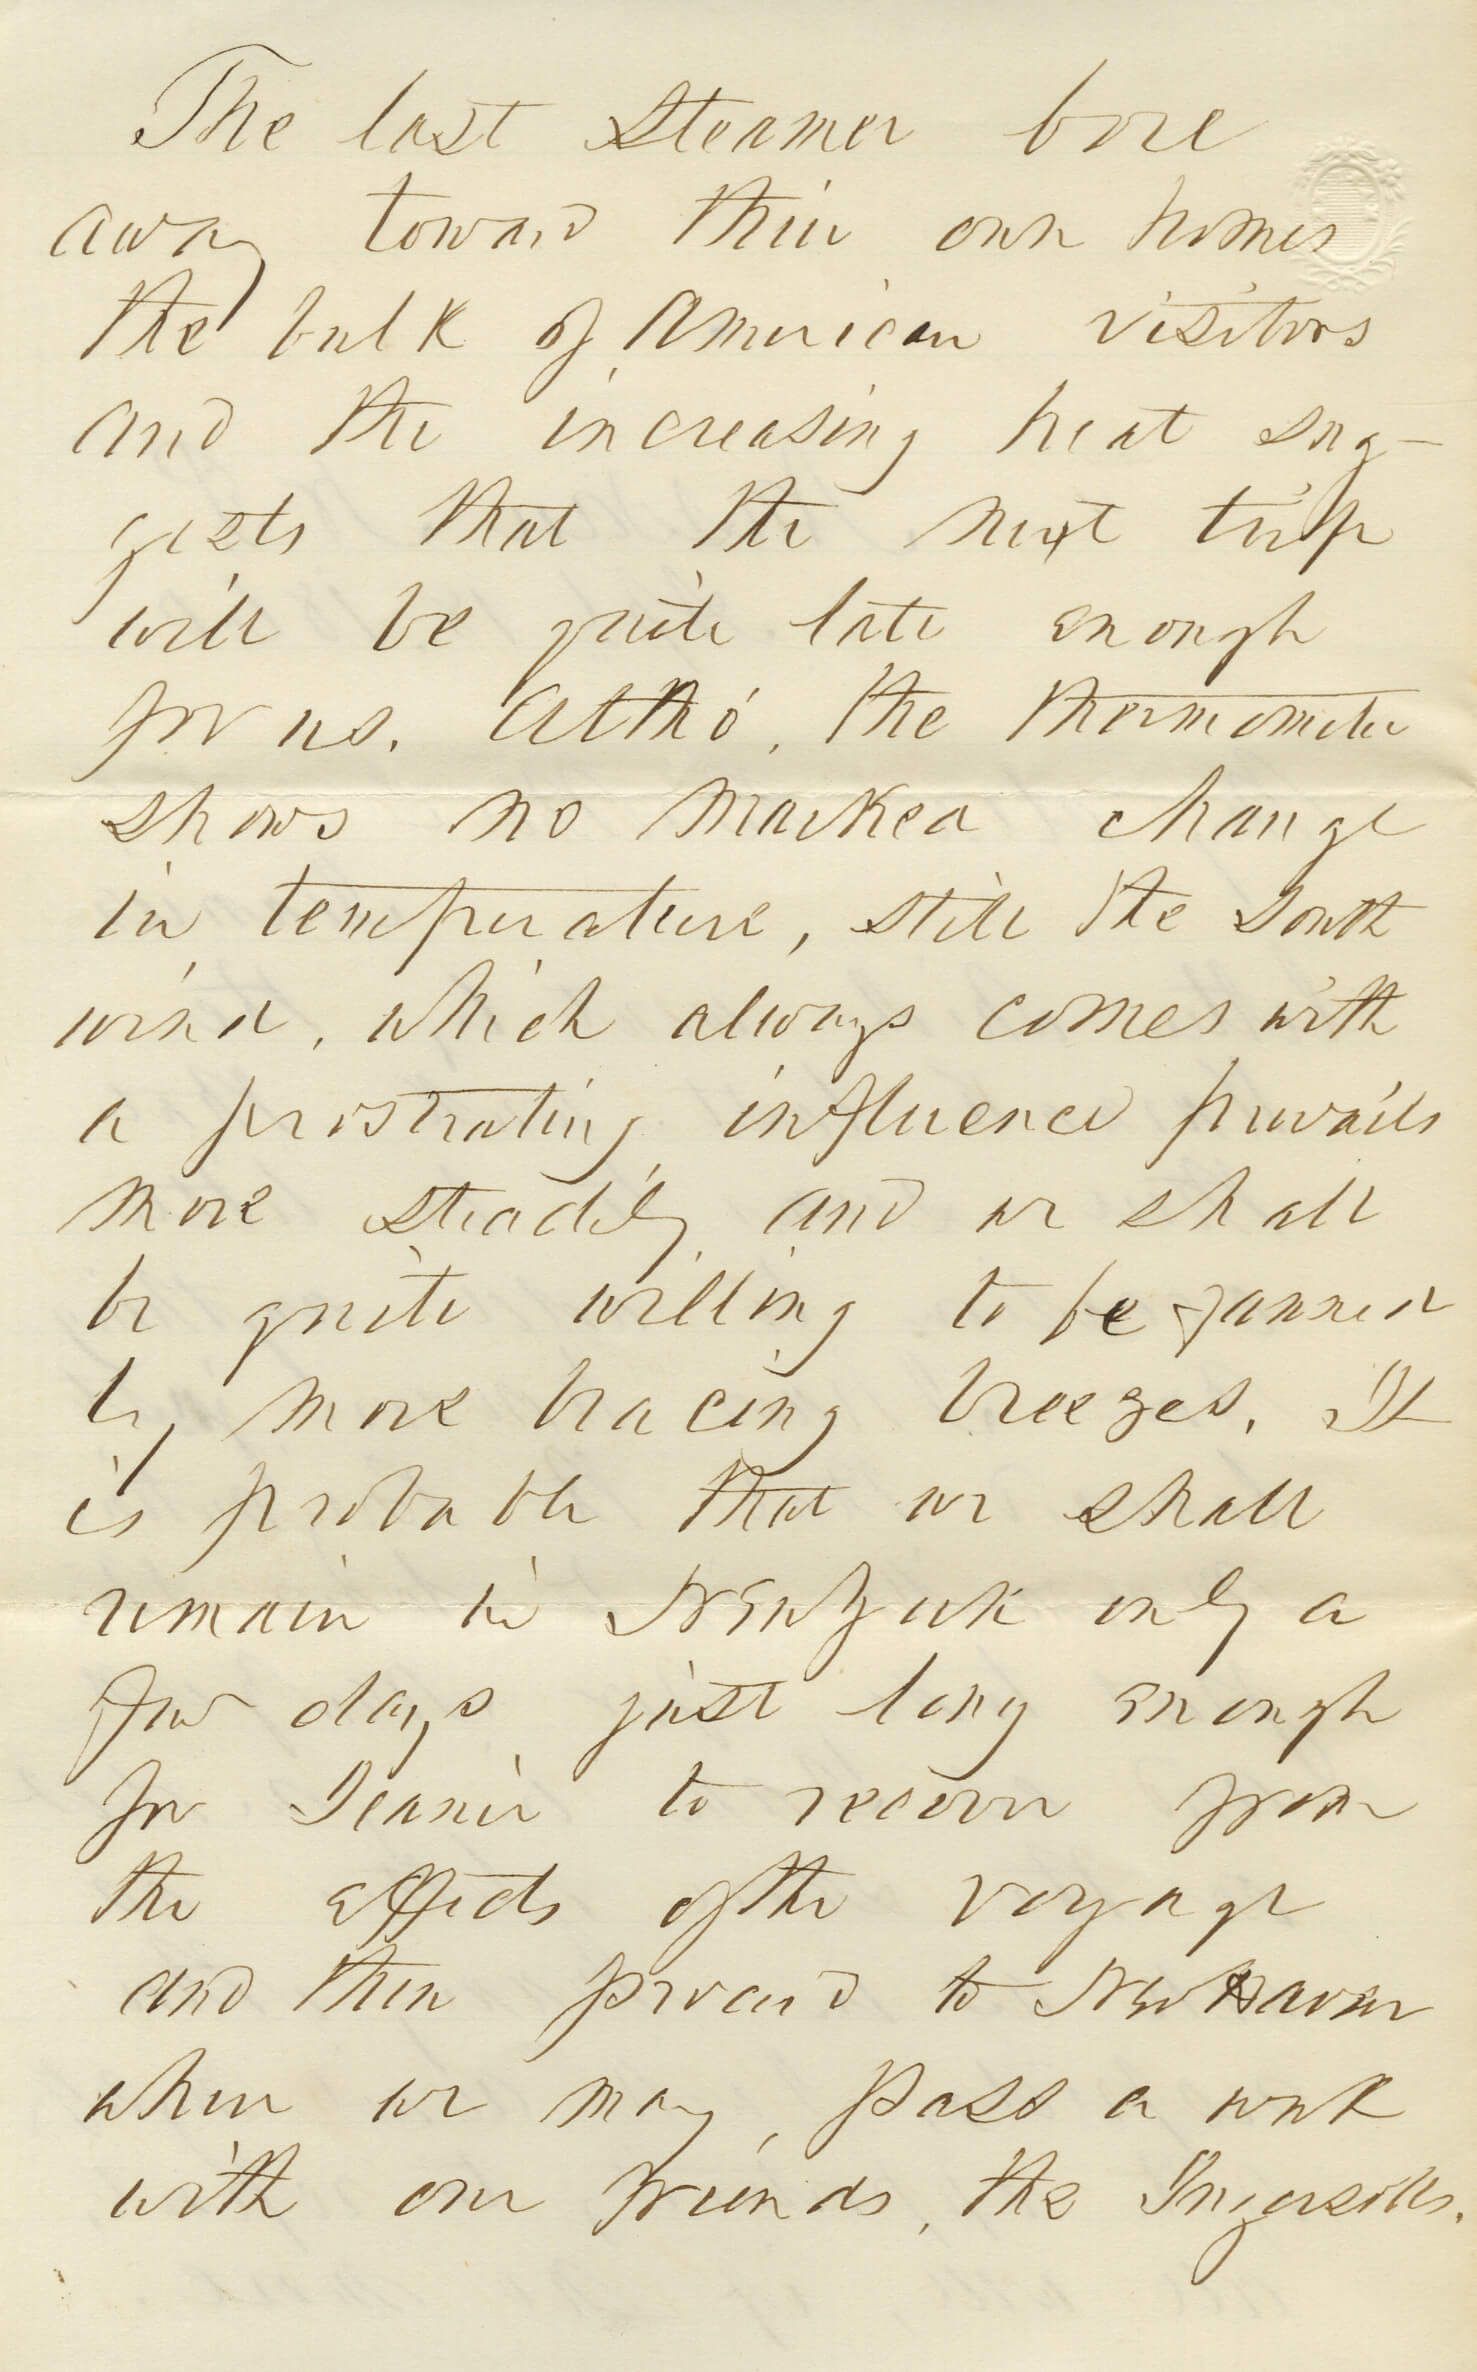 The last steamer bore
away toward their own homes
the bulk of American visitors
and the increasing heat sug-
gests that the next trip
will be quite late enough
for us. Altho', the thermometer
shows no marked change
in temperature, still the South
wind, which always comes with
a prostrating influence prevails
more steadily and we shall
be quite willing to be fanned
by more bracing breezes. It
is probable that we shall
remain in New York only a
few days just long enough
for Jeannie to recover from
the effects of the voyage
and then proceed to New Haven
where we may pass a week
with our friends, the Ingersolls.